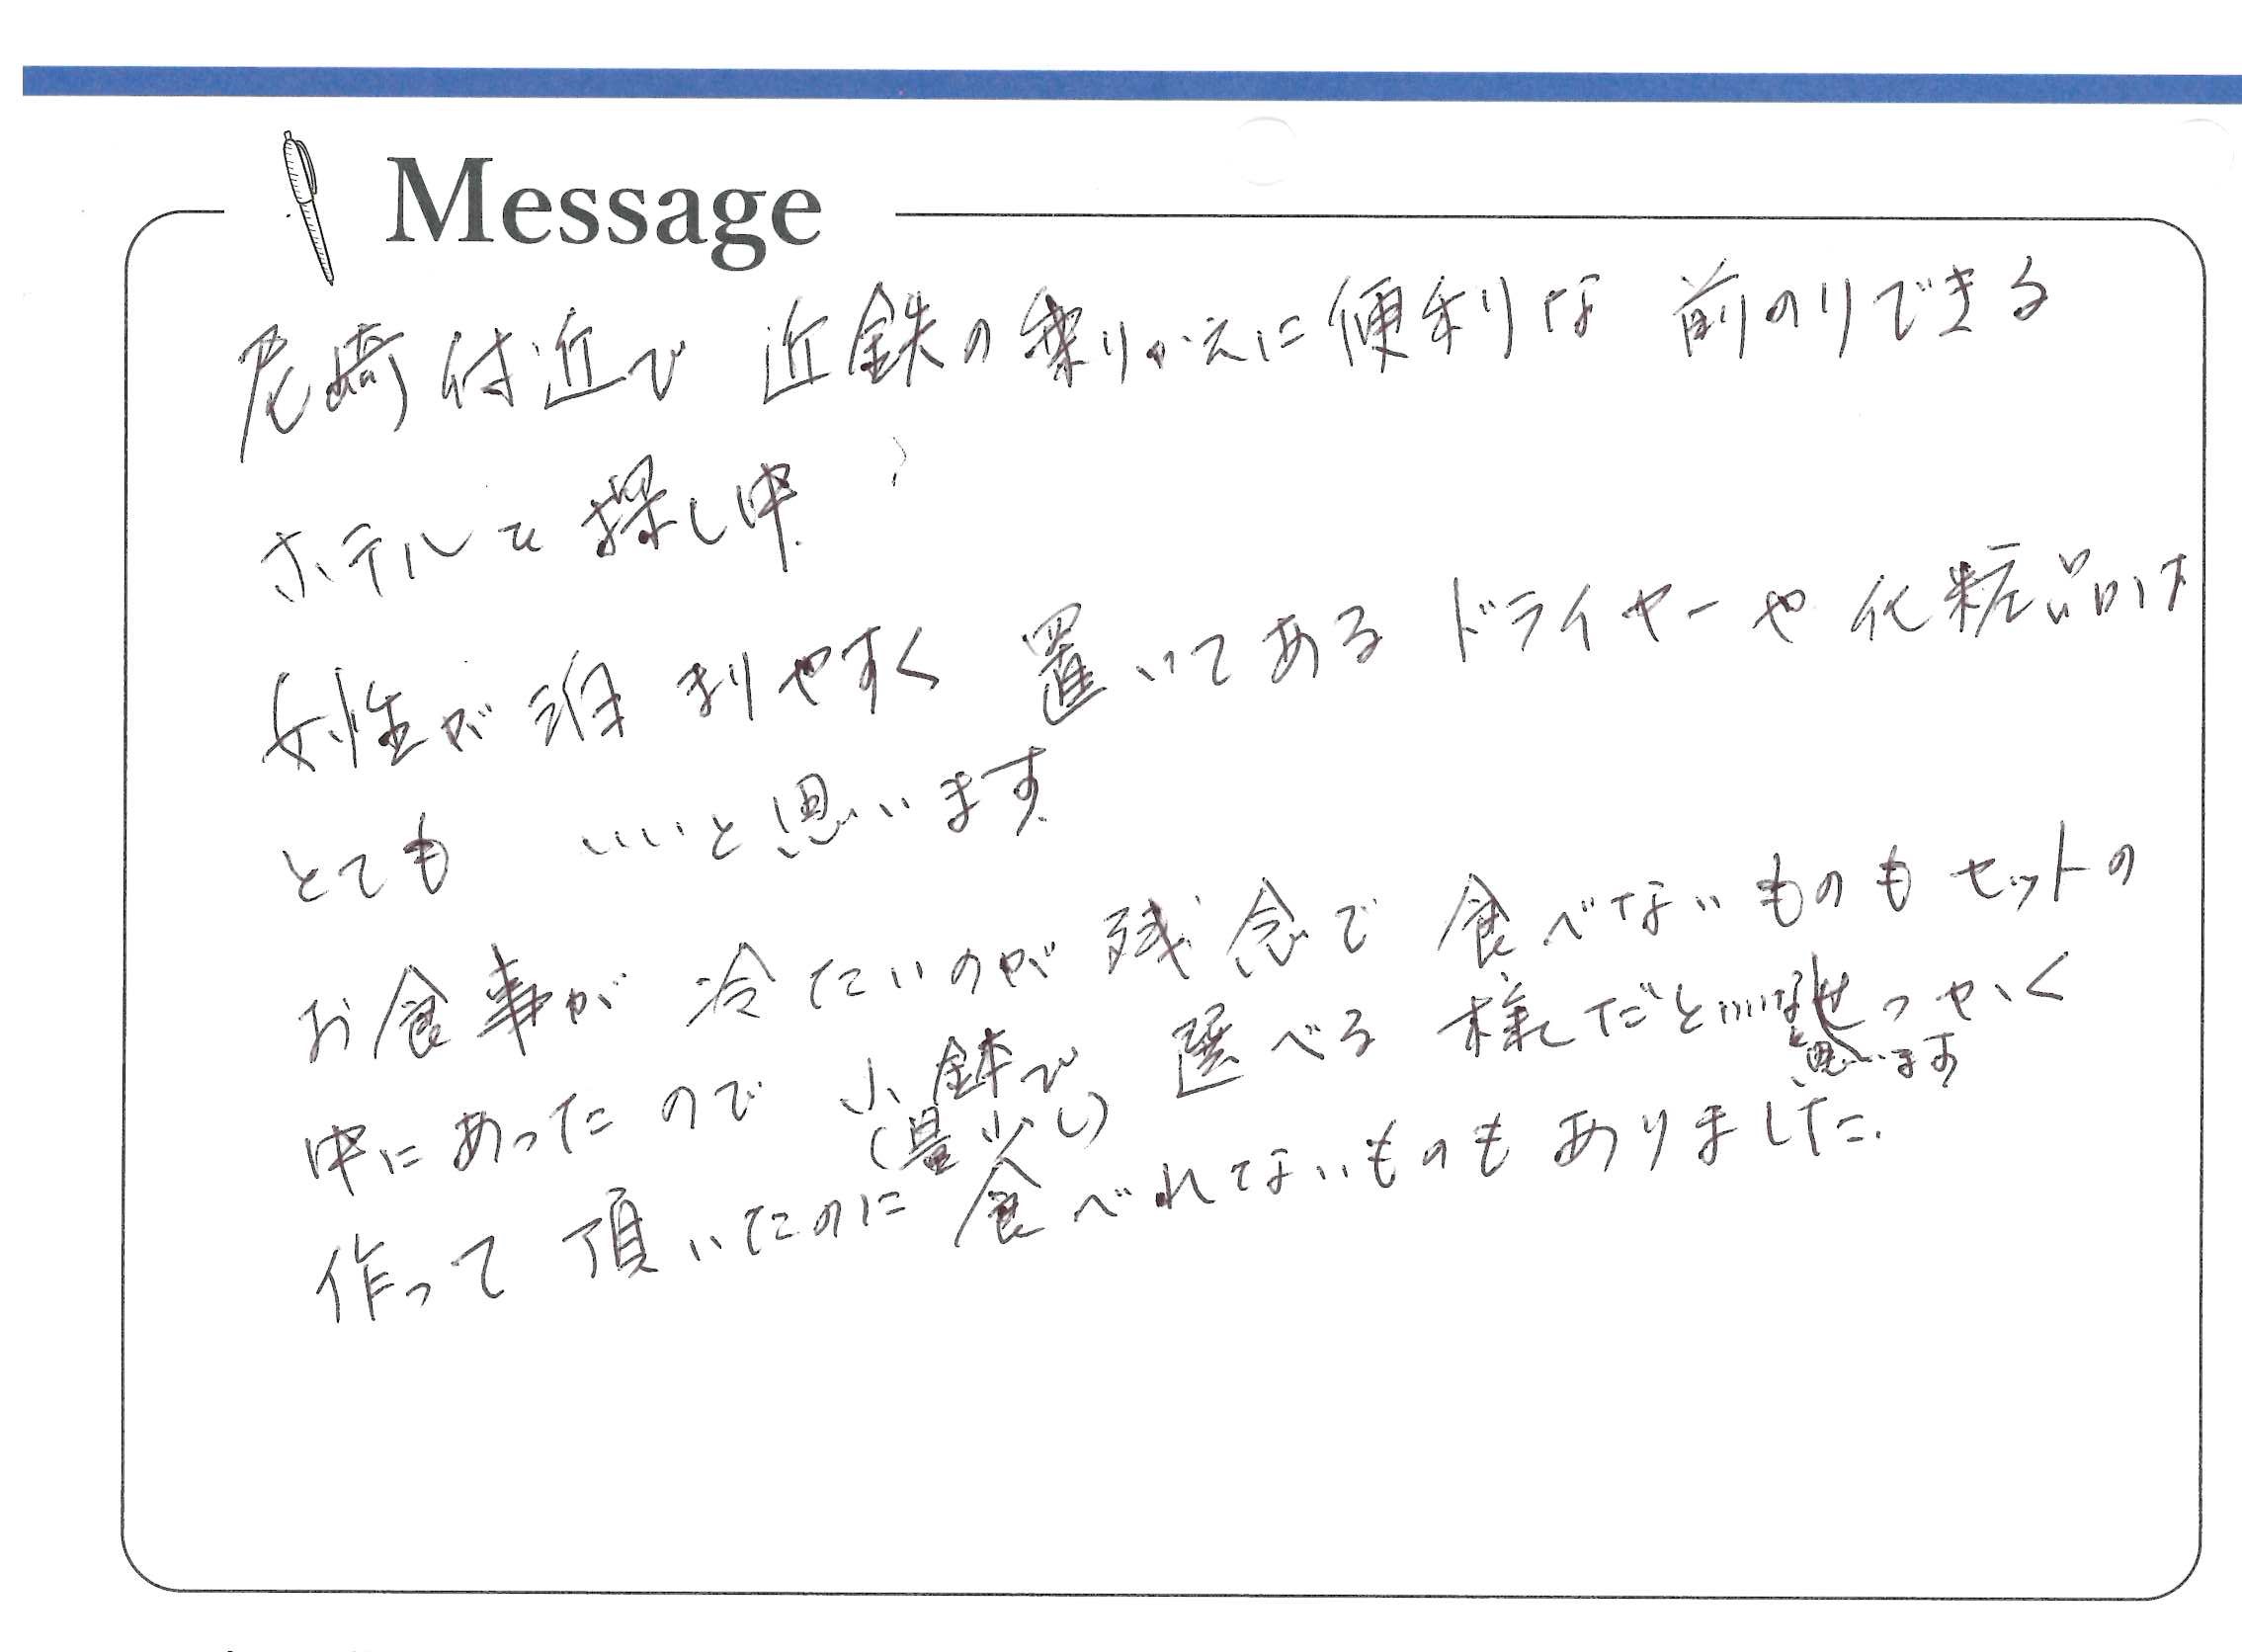 Message
尼崎付近で 近鉄の乗りかえに便利な 前のりできる
ホテルを探し中
女性が泊まりやすく 置いてあるドライヤーや化粧品は
とても いいと思います
お食事が 冷たいのが残念で 食べないものもセットの
中にあったので 小鉢で 選べる様だといいな せっかく
(量少し) と思います
作って頂いたのに 食べれてないものもありました.